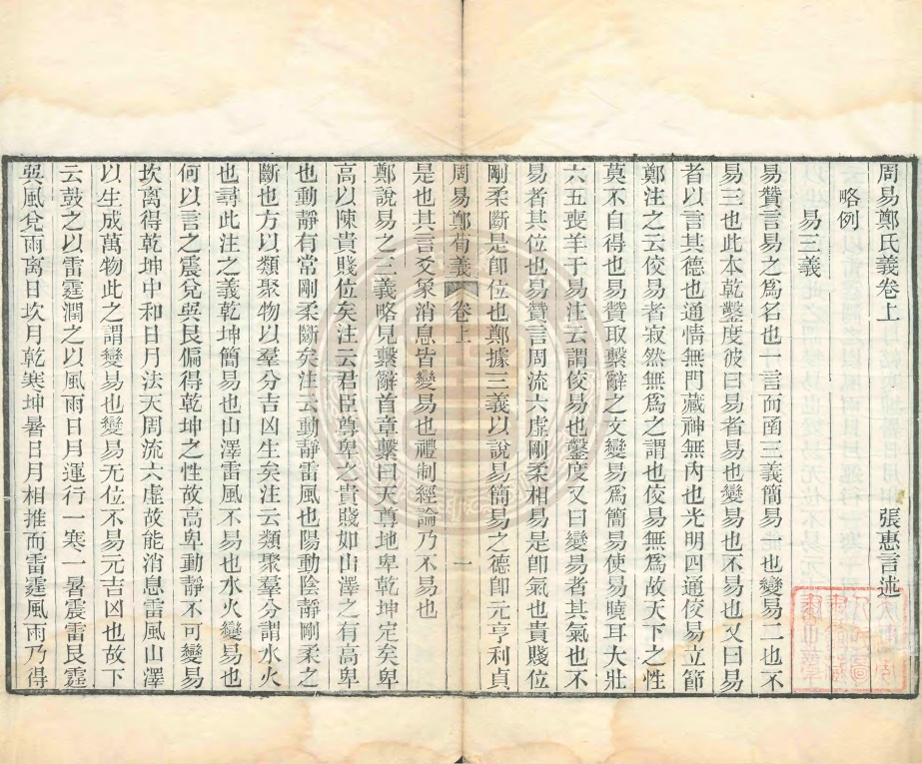 周易鄭氏義卷上 張惠言述
略例
易三義
易贊言易之爲名也一言而函三義簡易一也變易二也不
易三也此本乾鑿度彼曰易者易也變易也不易也又曰易
者以言其德也通情無門藏神無內也光明四通佼易立節
鄭注之云佼易者寂然無爲之謂也佼易無爲故天下之性
莫不自得也易贊取繫辭之文變易爲簡易使易曉耳大壯
六五喪羊于易注云謂佼易也鑿度又曰變易者其氣也不
易者其位也易贊言周流六虛剛柔相易是卽氣也貴賤位
剛柔斷是卽位也鄭據三義以說易簡易之德卽元亨利貞
周易鄭荀義 卷上 一
是也其言爻象消息皆變易也禮制經論乃不易也
鄭說易之三義略見繫辭首章繫曰天尊地卑乾坤定矣卑
高以陳貴賤位矣注云君臣尊卑之貴賤如山澤之有高卑
也動靜有常剛柔斷矣注云動靜雷風也陽動陰靜剛柔之
斷也方以類聚物以羣分吉凶生矣注云類聚羣分謂水火
也尋此注之義乾坤簡易也山澤雷風不易也水火變易也
何以言之震兌巽艮偏得乾坤之性故高卑動靜不可變易
坎离得乾坤中和日月法天周流六虛故能消息雷風山澤
以生成萬物此之謂變易也變易无位不易元吉凶也故下
云鼓之以雷霆潤之以風雨日月運行一寒一暑震雷艮霆
巽風兌雨离日坎月乾寒坤暑日月相推而雷霆風雨乃得